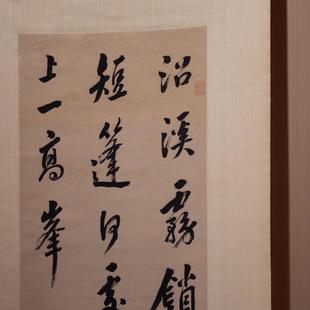 沿溪霧鎖
短篷何處
上一高峯